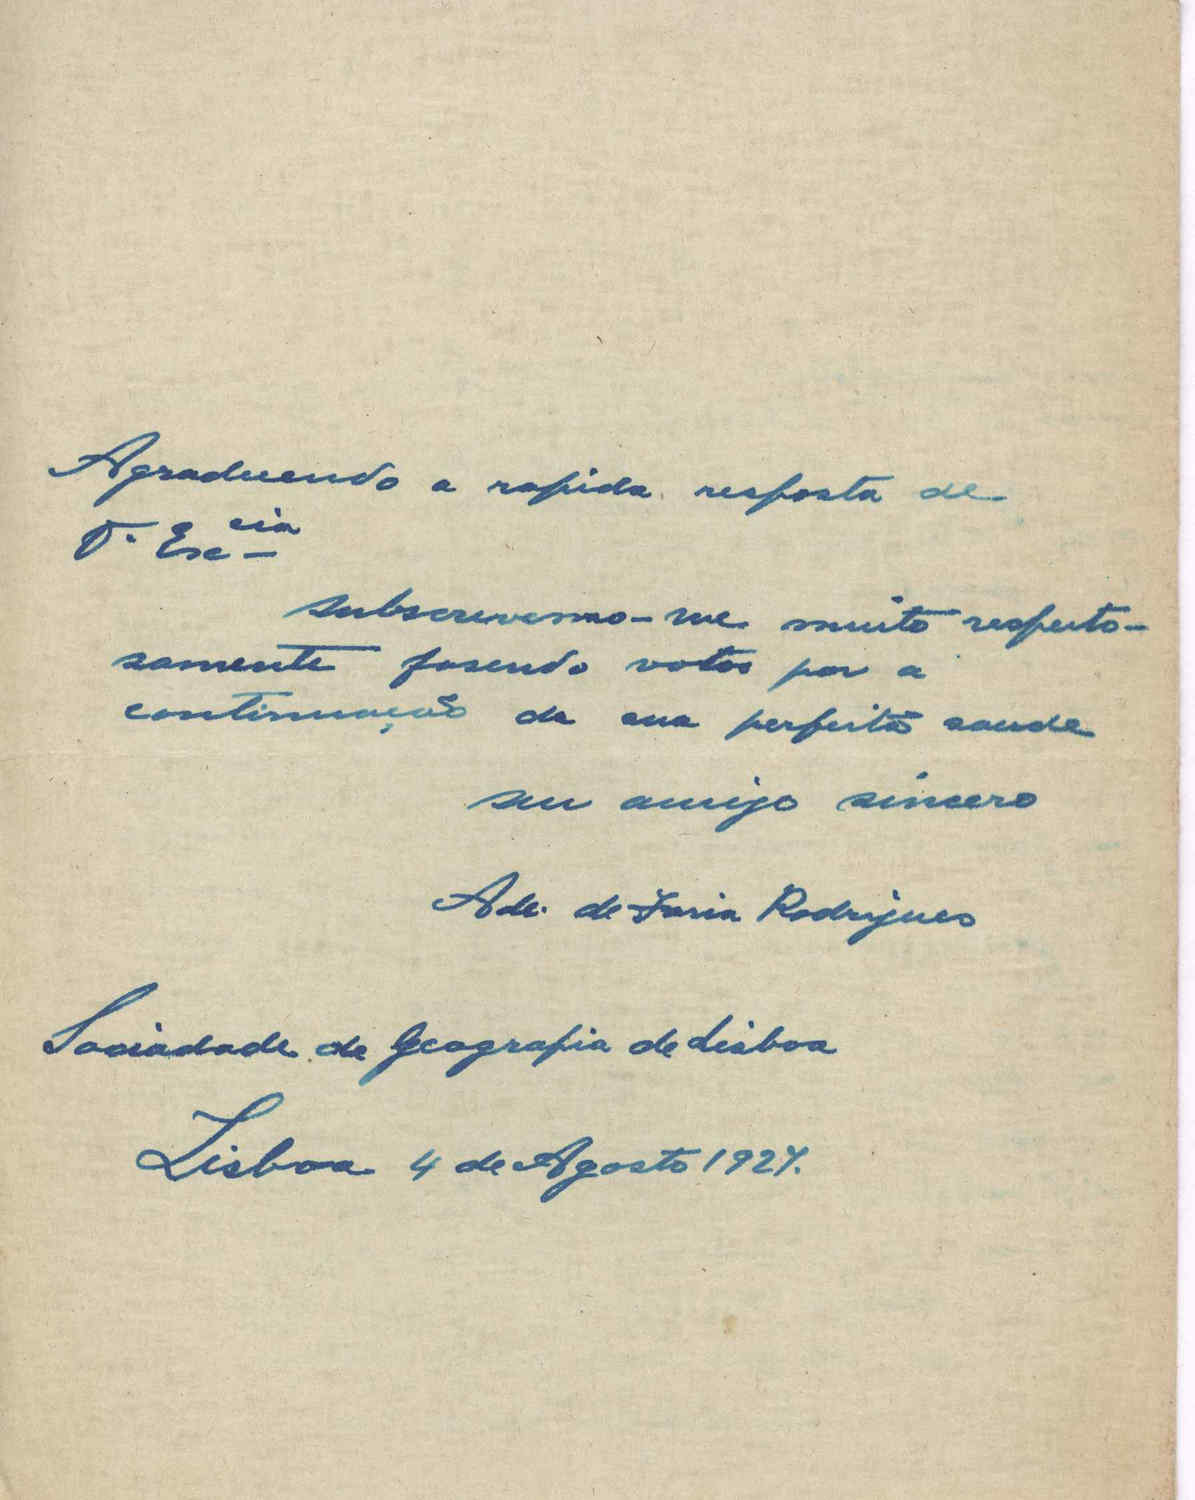 Agradecendo a rapida resposta de
V. Exc cia
subscrevermo-me muito respeito-
samente fasendo votos por a
continuação da sua perfeita saude
seu amigo sincero
Ade. de Faria Rodrigues
Sociadade de Geografia de Lisboa
Lisboa 4 de Agosto 1927.